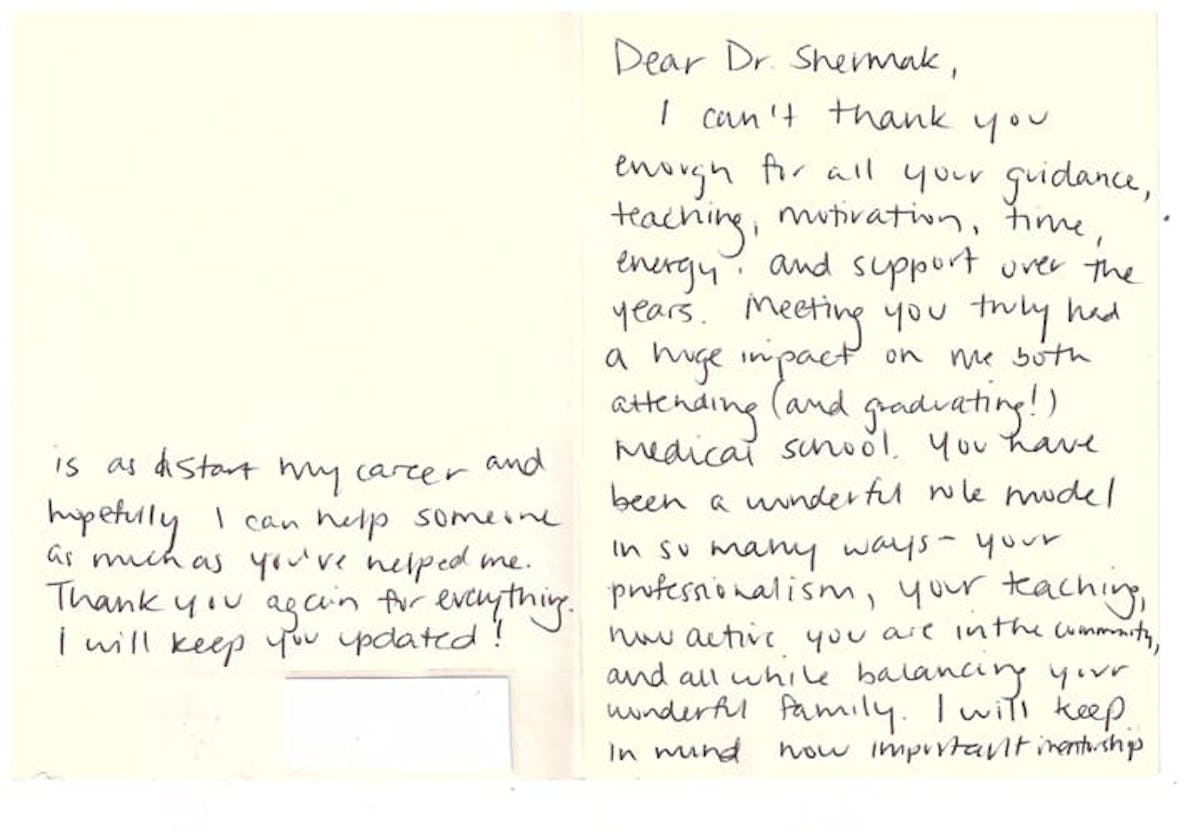 Dear Dr. Shermak,
I can't thank you
enough for all your guidance,
teaching, motivation, time,
energy, and support over the
years. Meeting you truly had
a huge impact on me both
attending (and graduating!)
medical school. You have
been a wonderful role model
in so many ways - your
professionalism, your teaching,
how active you are in the community,
and all while balancing your
wonderful family. I will keep
in mind how important mentorship
is as I start my career and
hopefully I can help someone
as much as you've helped me.
Thank you again for everything.
I will keep you updated!